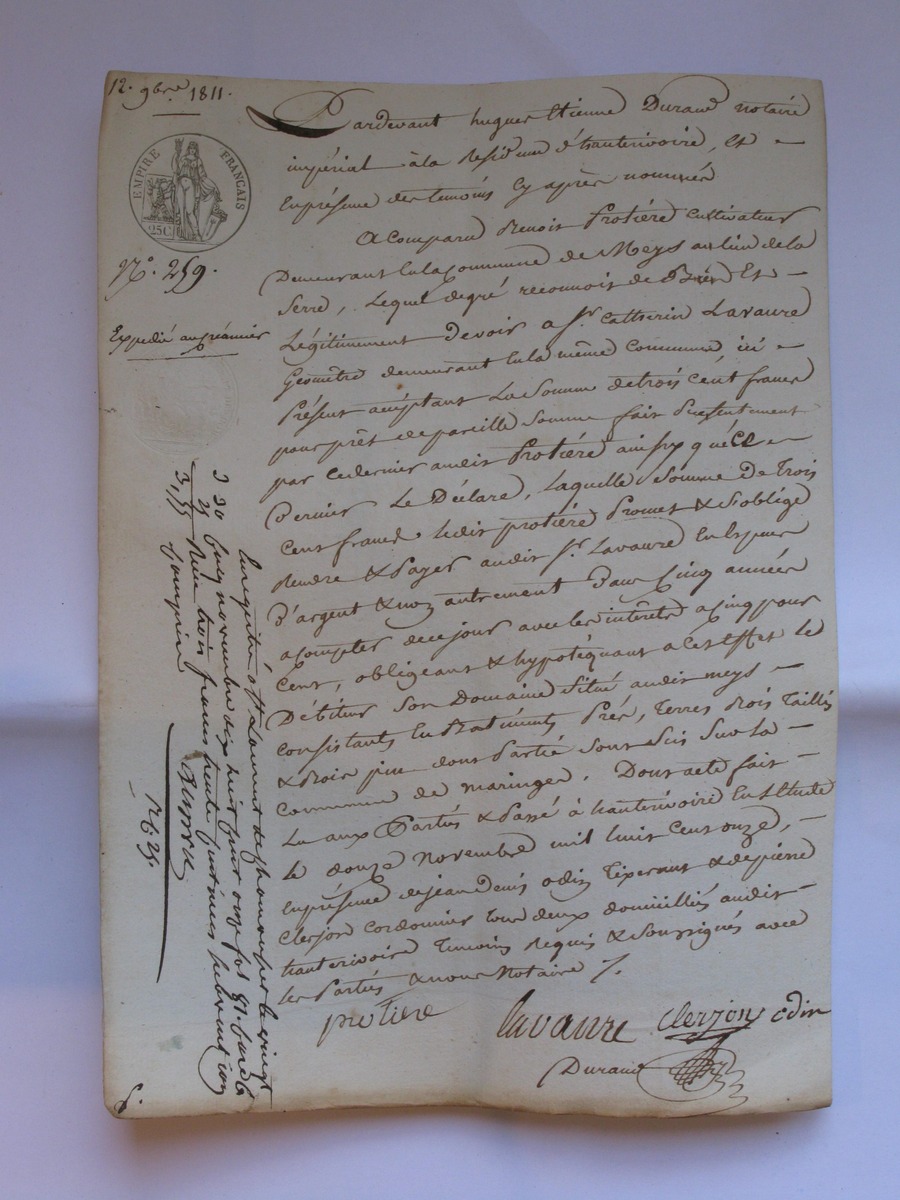 12. 9bre 1811.
EMPIRE FRANÇAIS
25 C
N.° 259.
Expedié au créancier
Pardevant hugues Etienne Durand notaire
impérial à la residence d'hauterivoire, et
en présence des temoins cy après nommés
A Comparu Benoit Protière Cultivateur
Demeurant en la Commune de Meys au lieu de la
Serre, Lequel de gré reconnoit de Bonne Et
Légitimement devoir a Sr. Catherin Lavaure
Géomètre demeurant en la même Commune, ici
Présent acceptant La Somme de trois Cent francs
pour prêt de pareille Somme fait
par ce dernier audit Protière ainsy que Ce
Dernier Le Déclare, Laquelle Somme de Trois
Cent francs Ledit protière Promet & s'oblige
Rendre & Payer audit Sr. Lavaure En Espèces
D'argent & non autrement Dans Cinq années
a Compter de ce jour avec les intérêts a Cinq pour
Cent, obligeant & hypotéquant a cet Effet le
Débiteur Son Domaine Situé audit meys
Consistants En Batiments Prés, Terres Bois Taillis
& Bois pin dont Partie Sont Sis Sur La
Commune de maringes. Dont acte fait
Lu aux Parties & Passé à hauterivoire En l'Etude
le douze Novembre mil huit Cent onze,
En présence de jean Denis odin Tixerant & de pierre
Clerjon Cordonnier tous deux domiciliés audit
hauterivoire Temoins Requis & Soussignés avec
les Parties & nous Notaire
protiere
Lavaure Clerjon odin
Durand
Enregistré à St Laurent de chamousset le vingt
Cinq novembre dix huit cent onze fol 81.
Reçu trois francs trente centimes subvention
Comprise
3
30
25
3,55